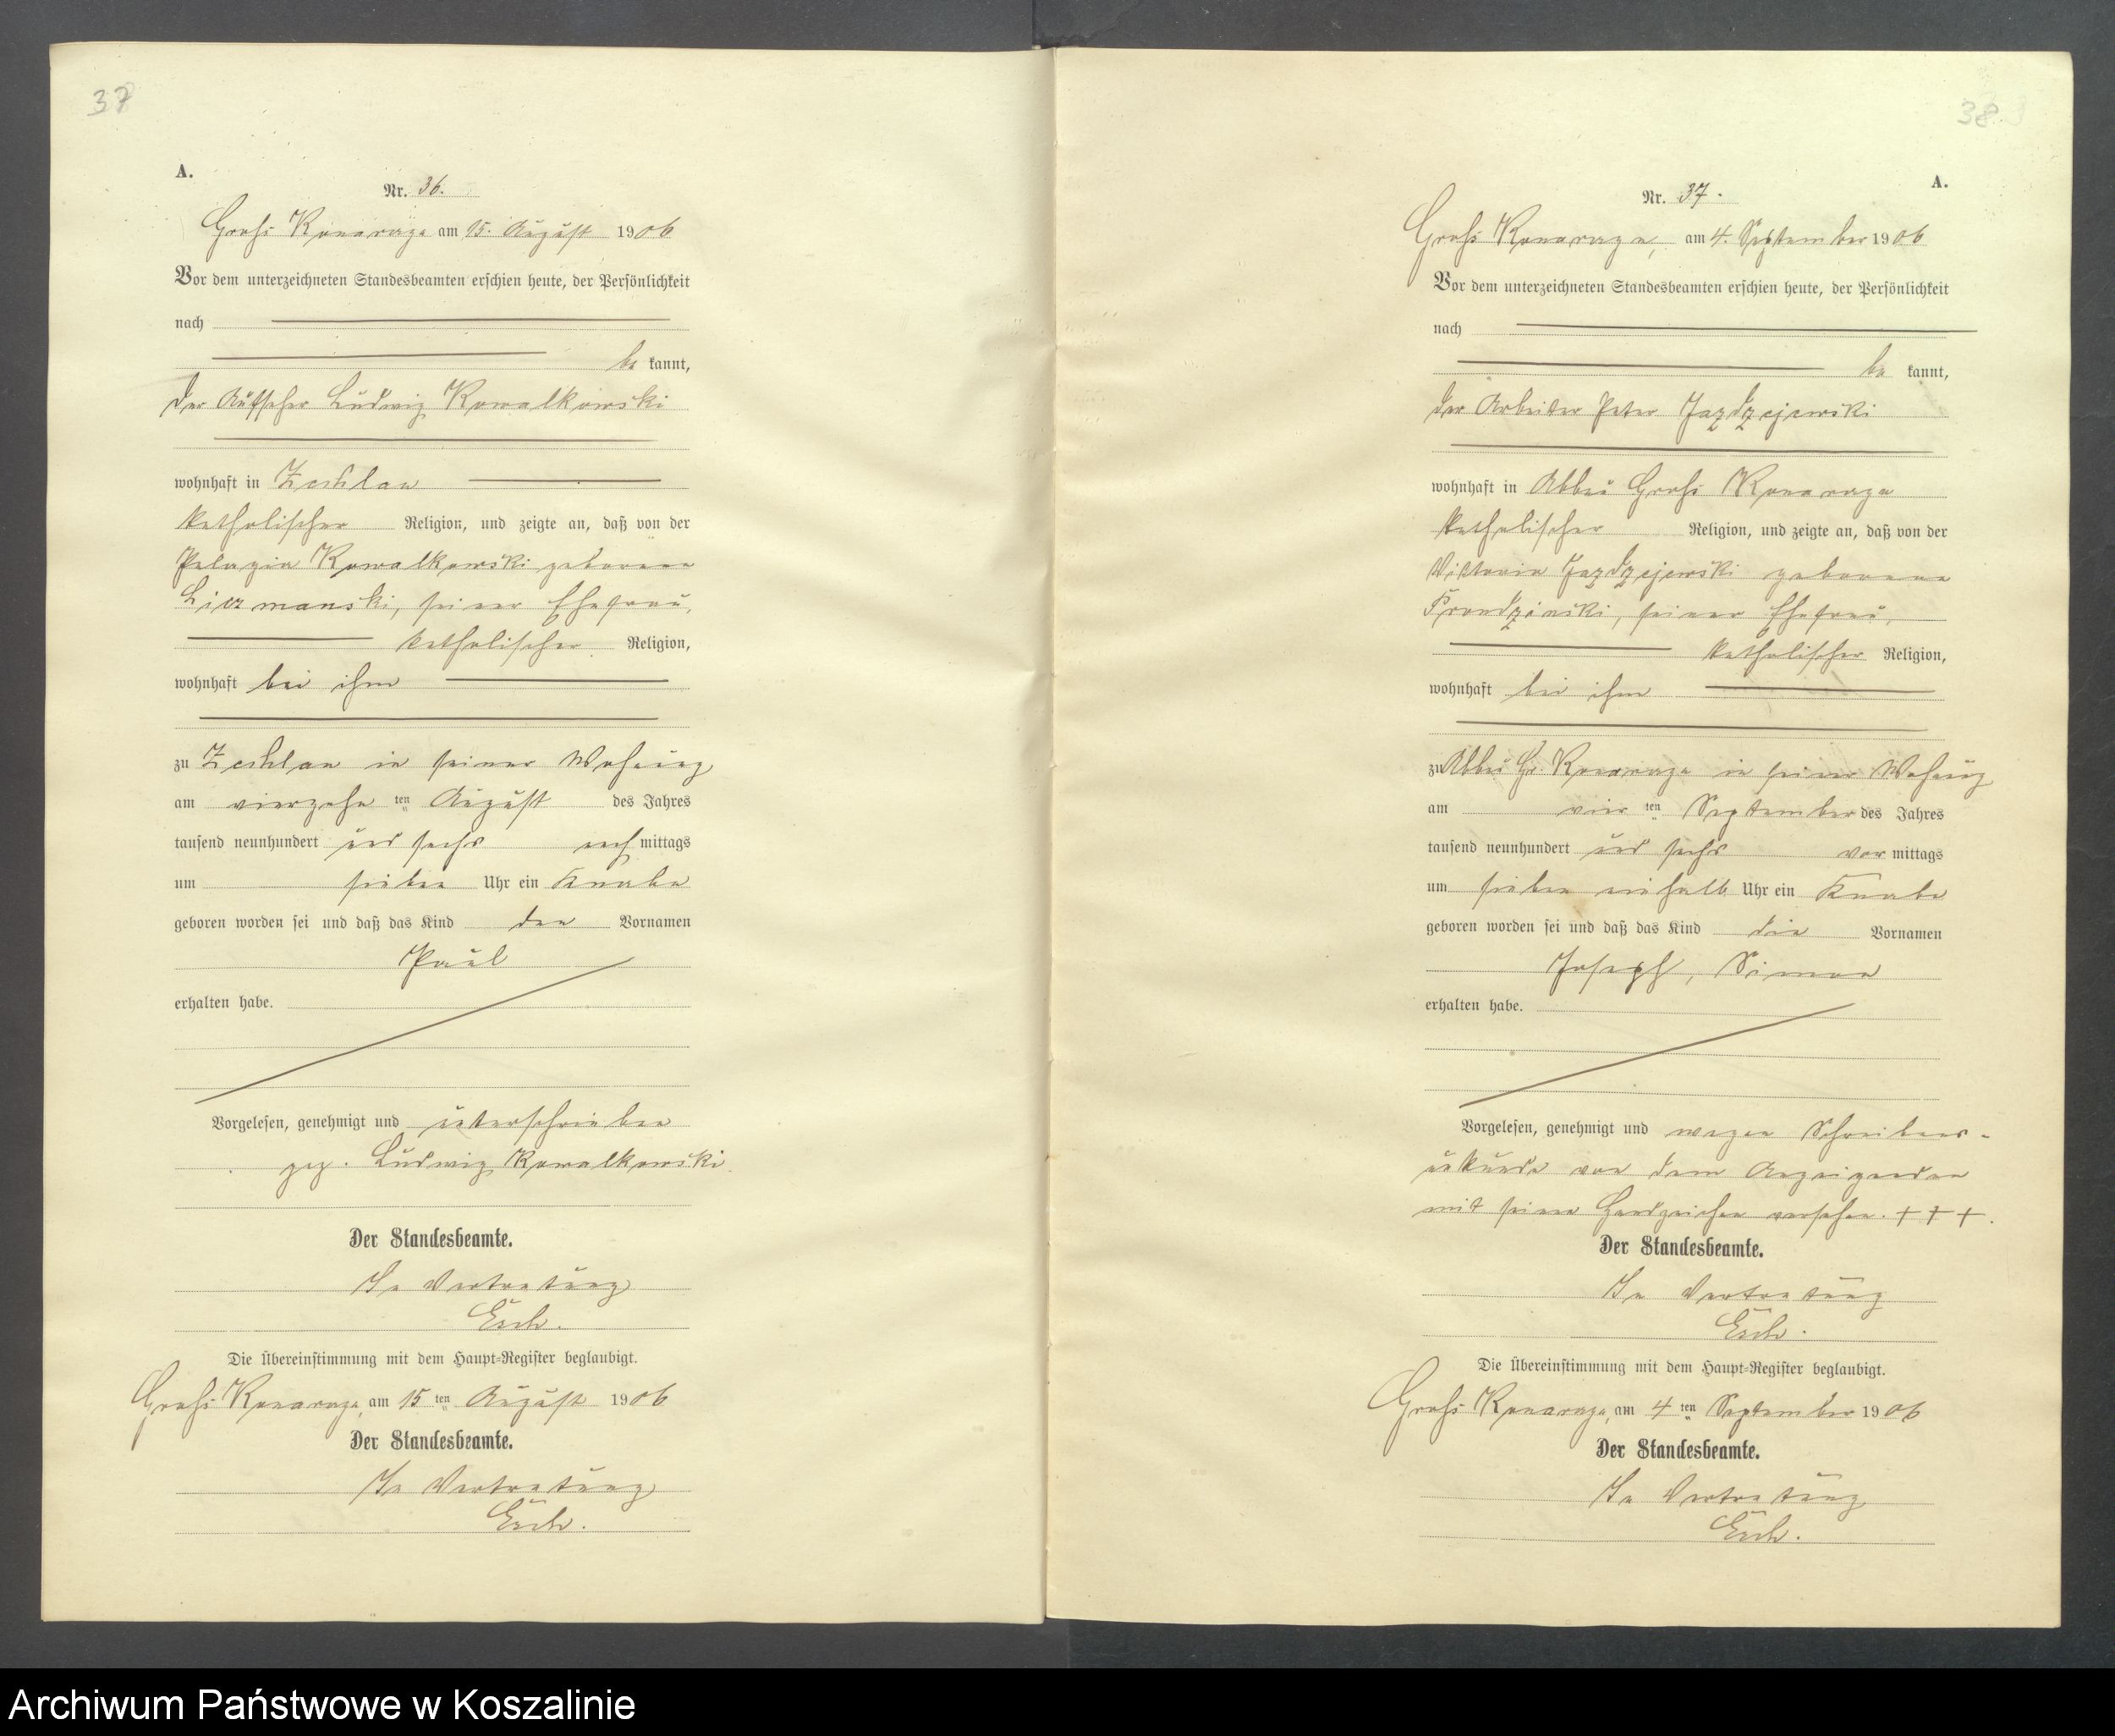 37
A.
Nr. 36.
Groß Konarczyn am 15. August 1906
Vor dem unterzeichneten Standesbeamten erschien heute, der Persönlichkeit
nach
be kannt,
der Ludwig Kowalkowski
wohnhaft in Zechlau
katholischer Religion, und zeigte an, daß von der
Pelagia Kowalkowski geborene
seiner Ehefrau,
katholischer Religion,
wohnhaft bei ihm
zu Zechlau in seiner Wohnung
am vierzehn ten August des Jahres
tausend neunhundert und sechs nach mittags
um sieben Uhr ein Knabe
geboren worden sei und daß das Kind den Vornamen
Paul
erhalten habe.
Vorgelesen, genehmigt und unterschrieben
gez. Ludwig Kowalkowski.
Der Standesbeamte.
In Vertretung
Die Übereinstimmung mit dem Haupt-Register beglaubigt.
am 15 ten August 1906
Der Standesbeamte.
In Vertretung
38
A.
Nr. 37.
am 4. September 1906
Vor dem unterzeichneten Standesbeamten erschien heute, der Persönlichkeit
nach
be kannt,
der Arbeiter Peter Jazdzejewski
wohnhaft in Abbau Groß
katholischer Religion, und zeigte an, daß von der
Viktoria Jazdzejewski geborene
Prondzinski, seiner Ehefrau,
katholischer Religion,
wohnhaft bei ihm
zu Abbau Gr. in seiner Wohnung
am vier ten September des Jahres
tausend neunhundert und sechs vor mittags
um sieben einhalb Uhr ein Knabe
geboren worden sei und daß das Kind die Vornamen
Joseph, Simon
erhalten habe.
Vorgelesen, genehmigt und wegen Schreibens-
unkunde von dem Anzeigenden
mit seinen Handzeichen versehen. + + +.
Der Standesbeamte.
In Vertretung
Die Übereinstimmung mit dem Haupt-Register beglaubigt.
am 4 ten September 1906
Der Standesbeamte.
In Vertretung
Archiwum Państwowe w Koszalinie